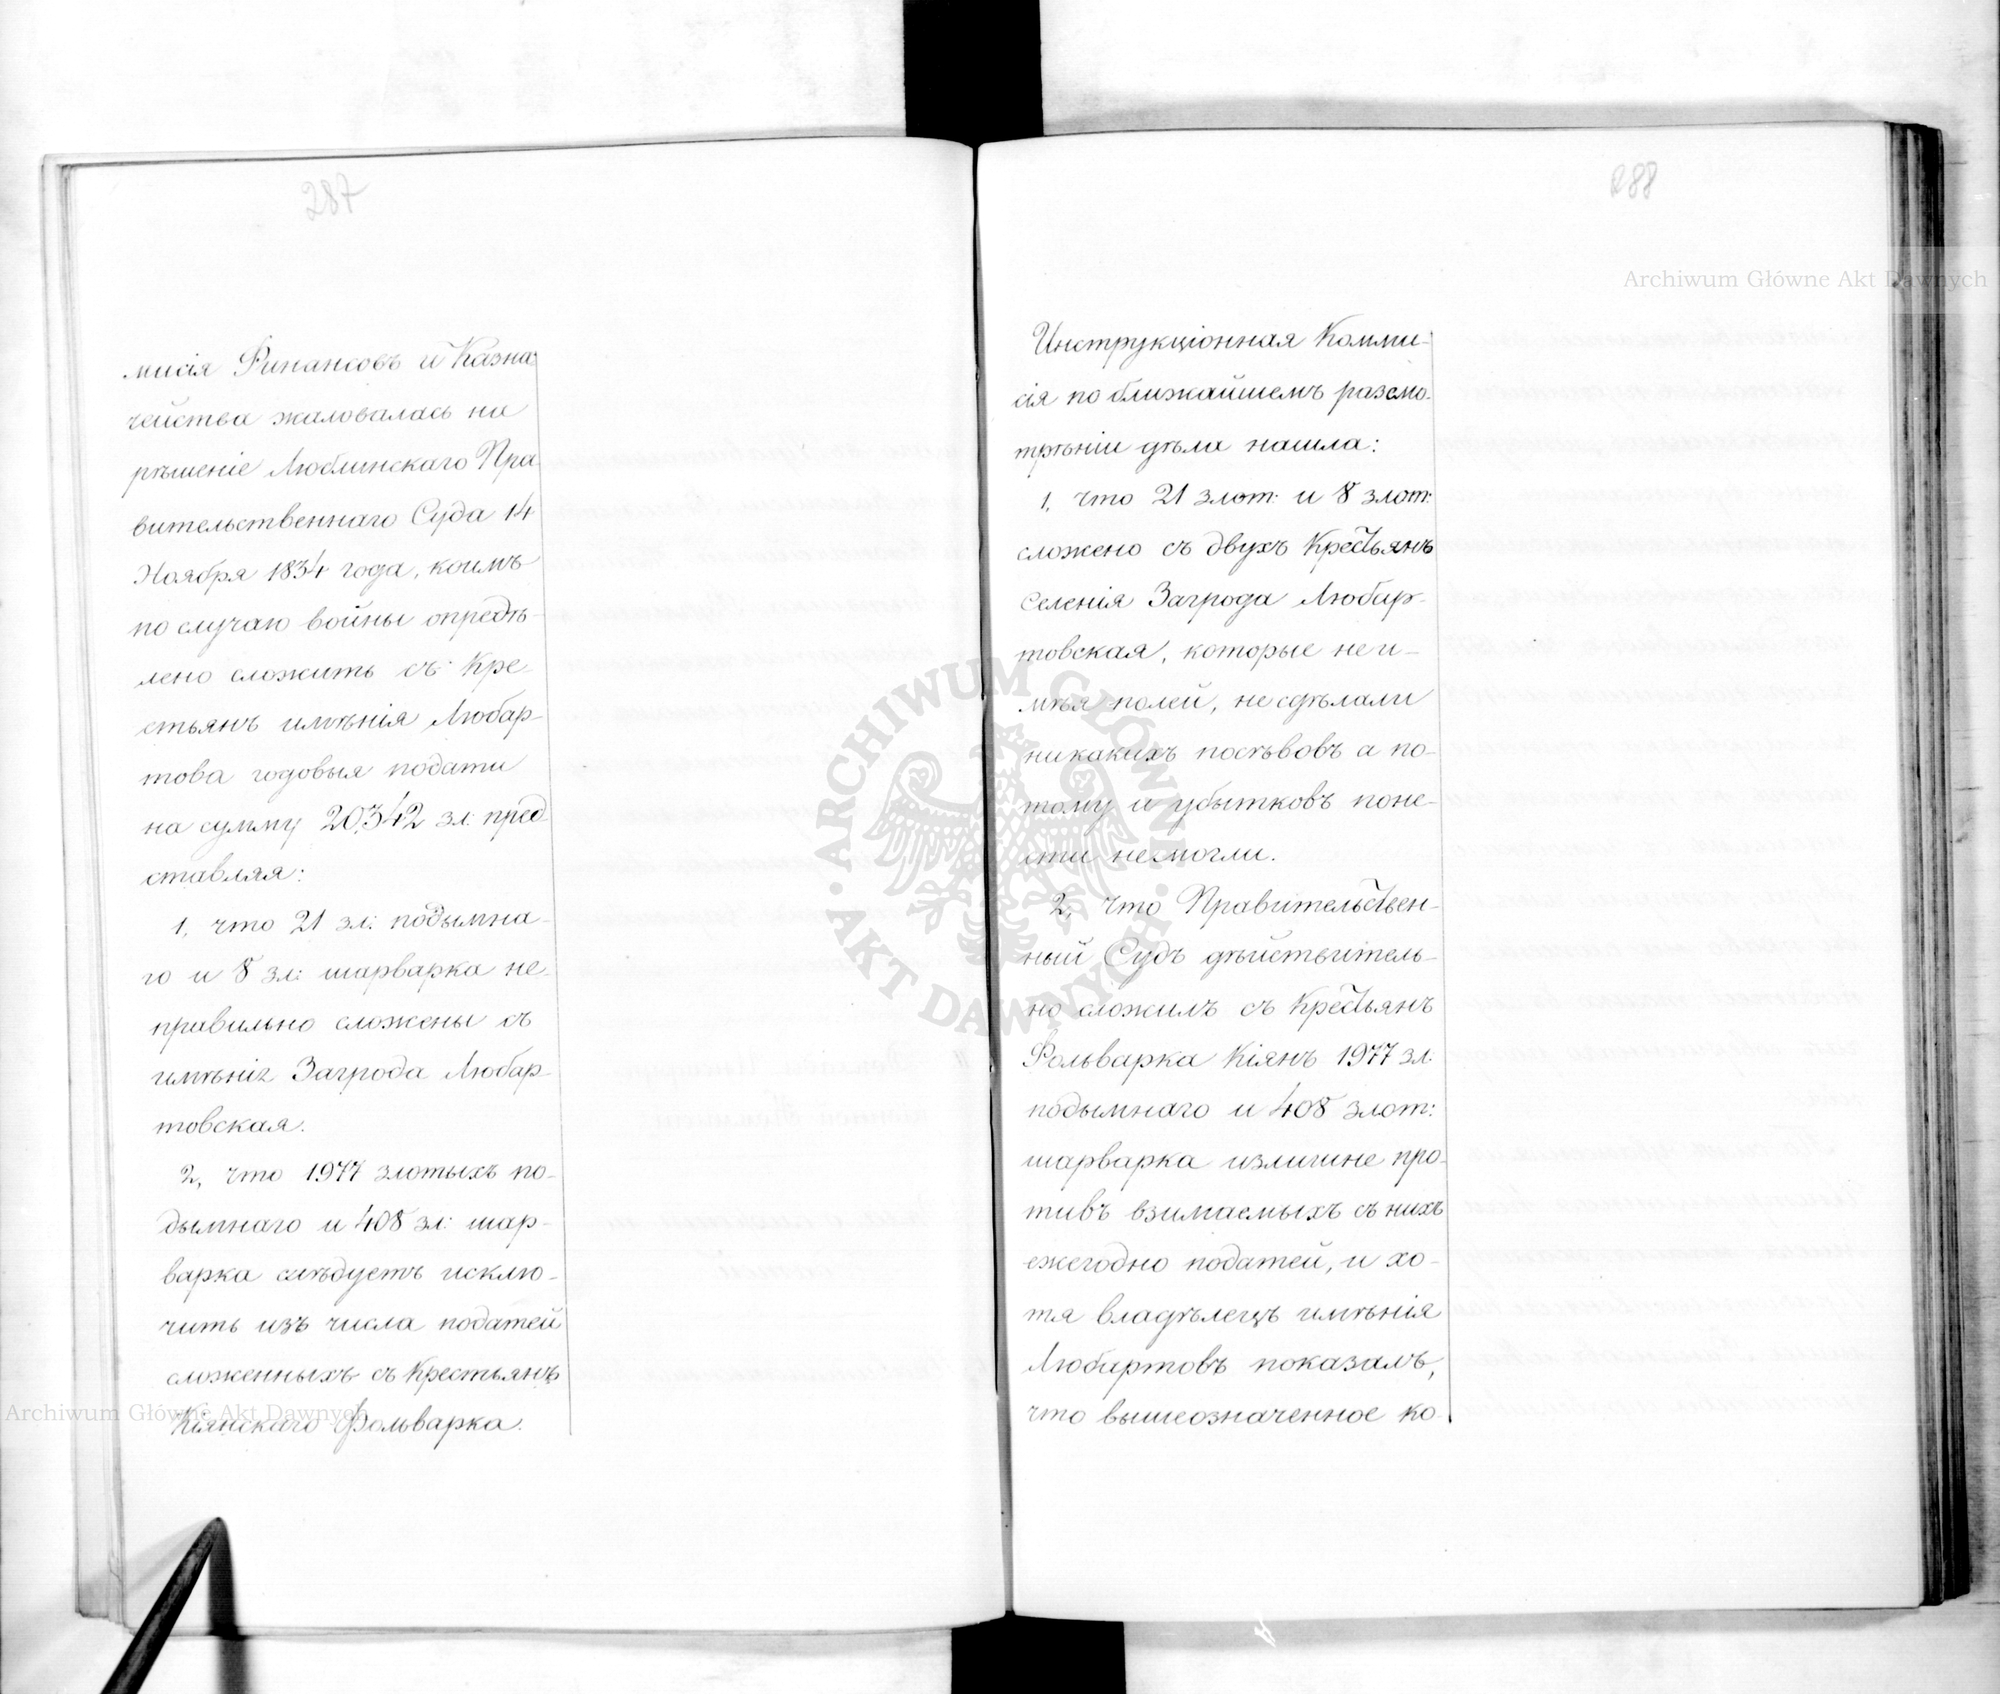 287
мисія Финансовъ и Казна-
чейства жаловалась на
рѣшеніе Люблинскаго Пра
вительственнаго Суда 14
Ноября 1834 года, коимъ
по случаю войны опредѣ-
лено сложить съ Кре-
стьянъ имѣнія Любар-
това годовыя подати
на сумму 20,342 зл: пред
ставляя:
1, что 21 зл: подымна-
го и 8 зл: шарварка не-
правильно сложены съ
имѣнія Загрода Любар-
товская.
2, что 1977 злотыхъ по-
дымнаго и 408 зл: шар-
варка слѣдуетъ исклю-
чить изъ числа податей
сложенныхъ съ Крестьянъ
Кіянскаго Фольварка.
288
Инструкціонная Комми-
сія по ближайшемъ разсмо-
трѣніи дѣла нашла:
1, что 21 злот: и 8 злот:
сложено съ двухъ Крестьянъ
Селенія Загрода Любар-
товская, которые не и-
мѣя полей, не сдѣлали
никакихъ посѣвовъ а по-
тому и убытковъ поне-
сти не могли.
2, что Правительствен-
ный Судъ дѣйствитель-
но сложилъ съ Крестьянъ
Фольварка Кіянъ 1977 зл.
подымнаго и 408 злот:
шарварка излишне про-
тивъ взимаемыхъ съ нихъ
ежегодно податей, и хо-
тя владѣлецъ имѣнія
Любартовъ показалъ,
что вышеозначенное ко-
Archiwum Główne Akt Dawnych
Archiwum Główne Akt Dawnych
ARCHIWUM GŁÓWNE AKT DAWNYCH